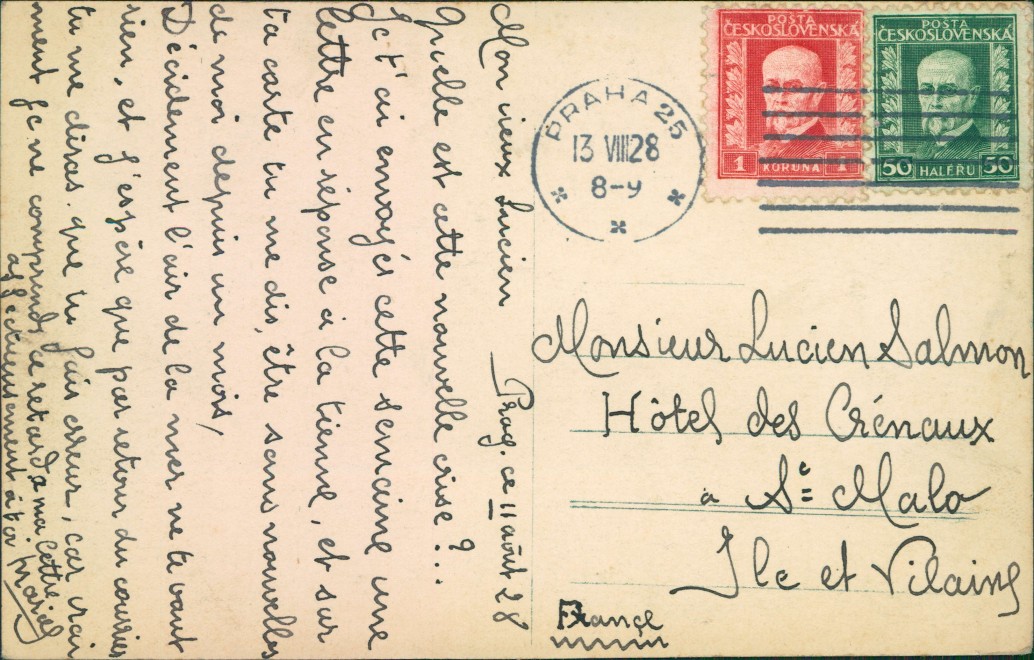 Mon vieux Lucien
Prag. ce 11 août 28
Quelle est cette nouvelle crise ?..
Je t'ai envoyé cette semaine une
lettre en réponse à la tienne, et sur
ta carte tu me dis, être sans nouvelles
de moi depuis un mois,
Décidément l'air de la mer ne te vaut
rien, et j'espère que par retour du courrier
tu me diras que tu fais erreur, car vrai
ment je ne comprends ce retard à ma lettre
affectueusement à toi
POSTA
ČESKOSLOVENSKÁ
1 KORUNA 1
POSTA
ČESKOSLOVENSKÁ
50 HALÉRU 50
PRAHA 25
13 VIII 28
8-9
Monsieur Lucien Salmon
Hôtel des Crénaux
à St Malo
Ile et Vilaine
France